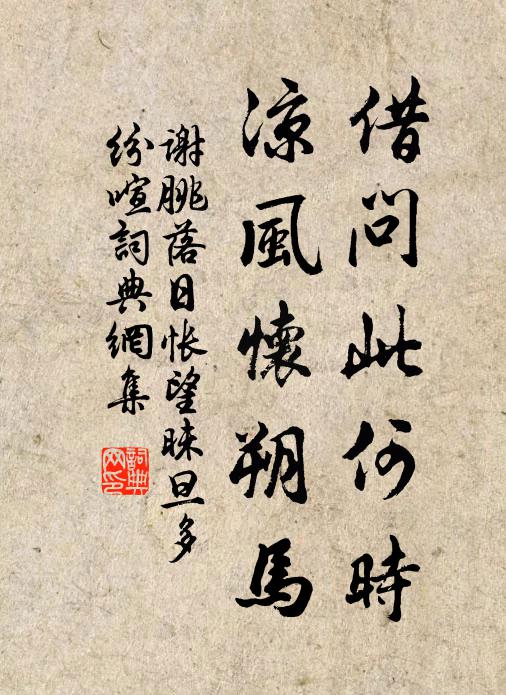 借問此何時
凉風懷朔馬
謝朓落日悵望昧旦多
紛喧詞典網集
詞典
网印